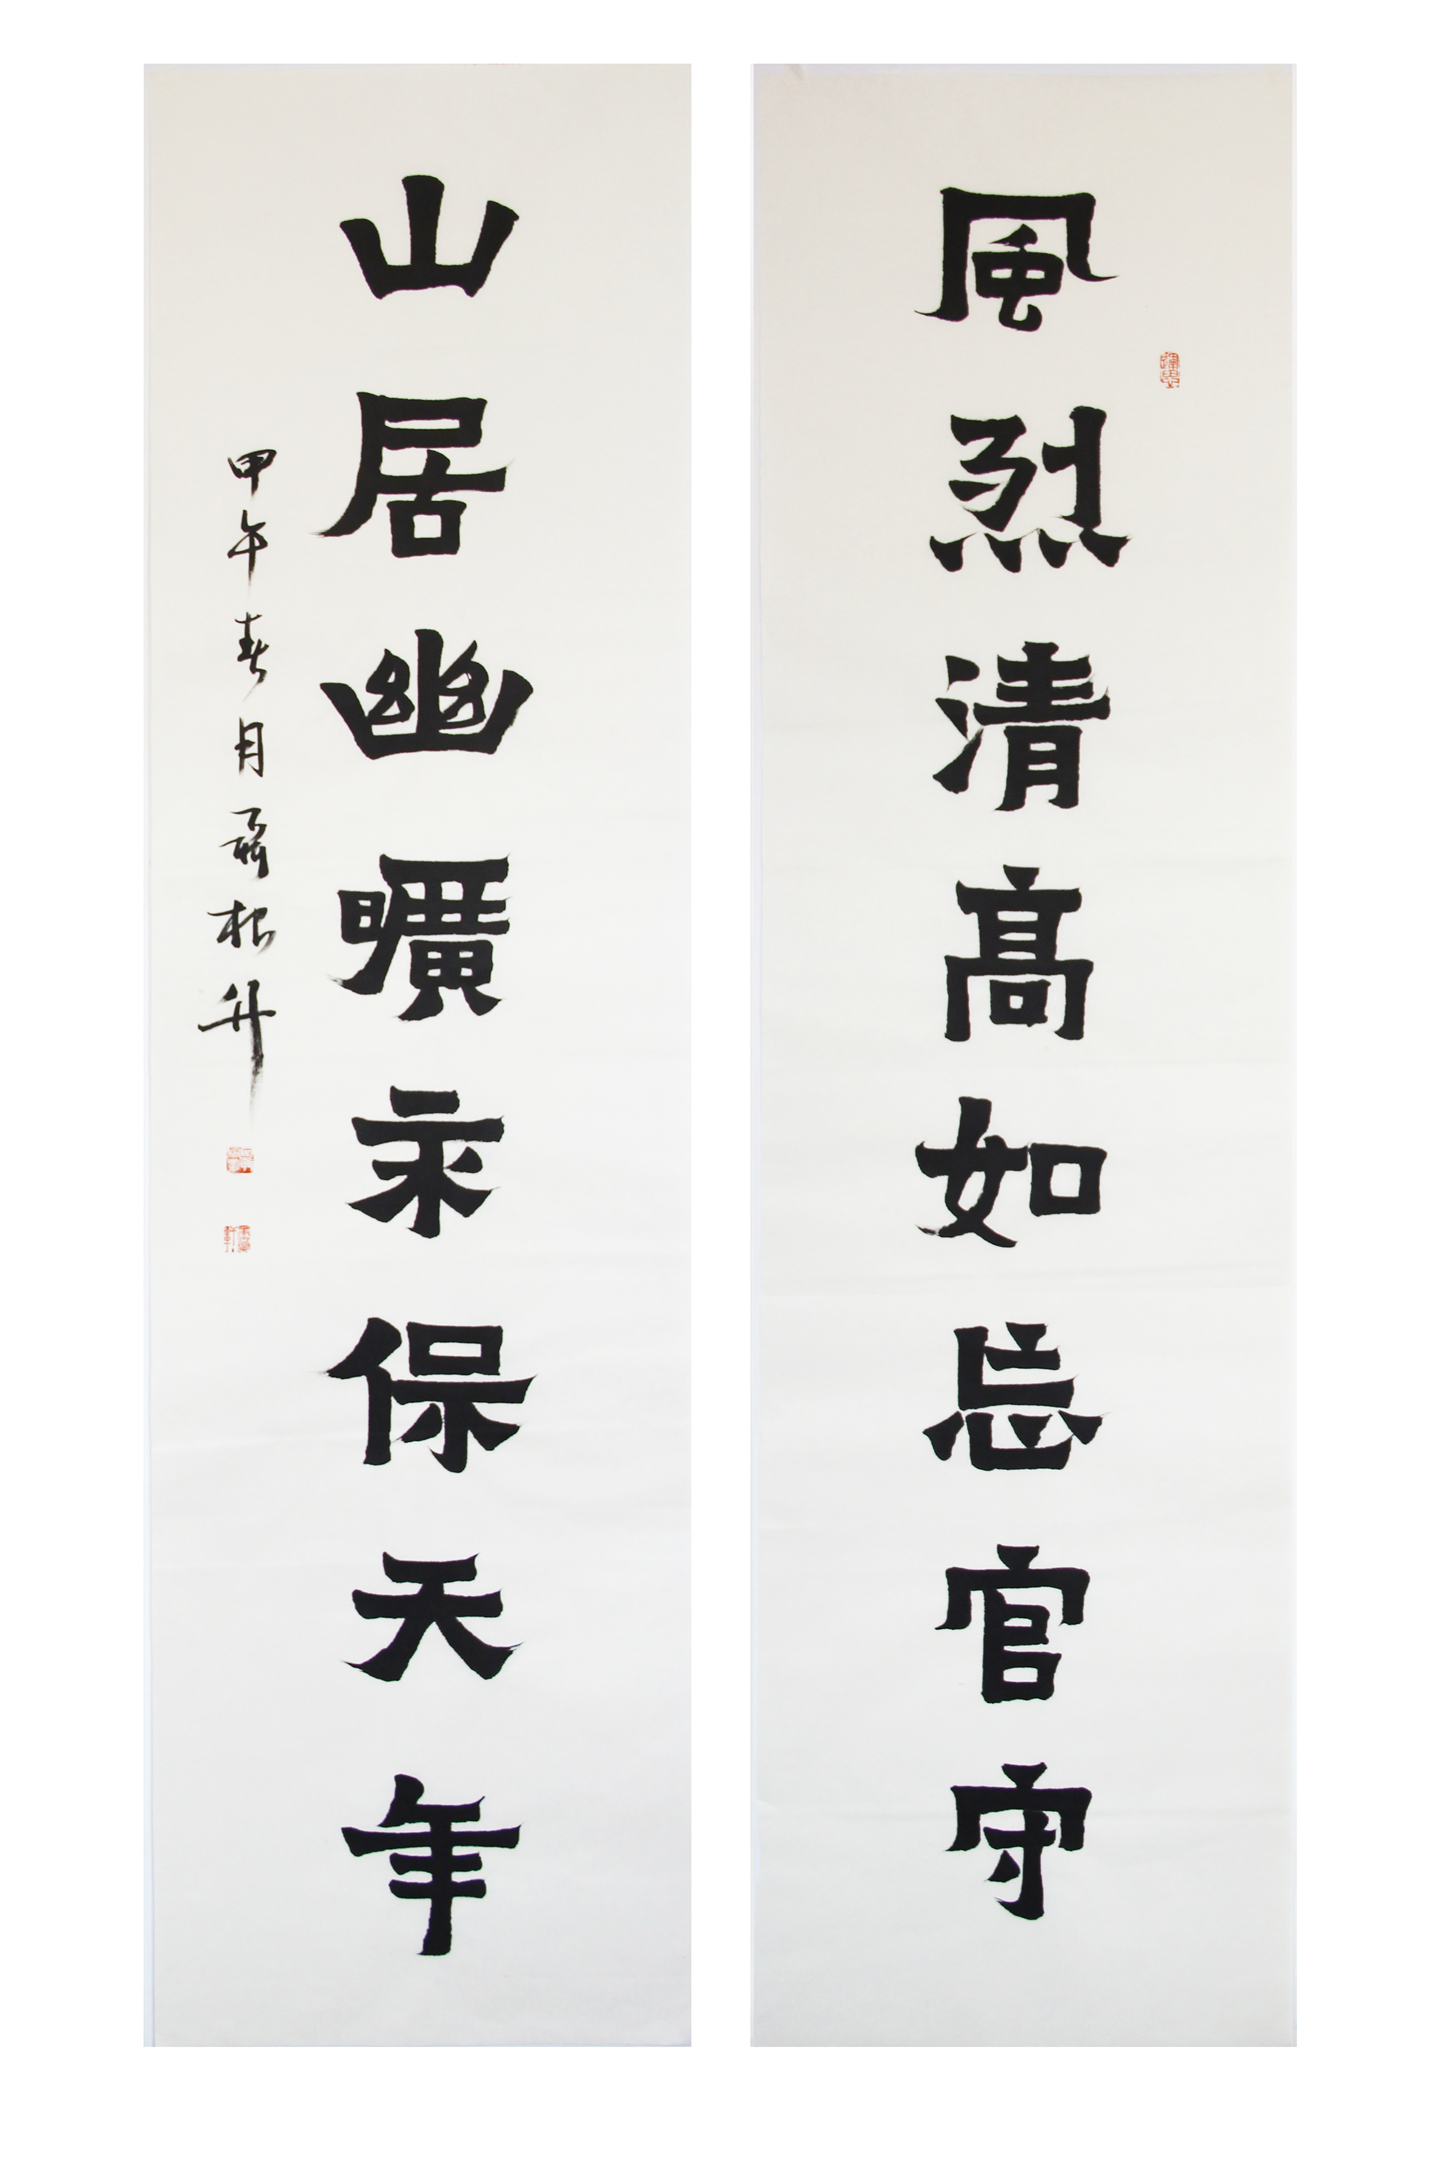 風烈清高如忘官守
山居幽曠永保天年
甲午春月聶根升